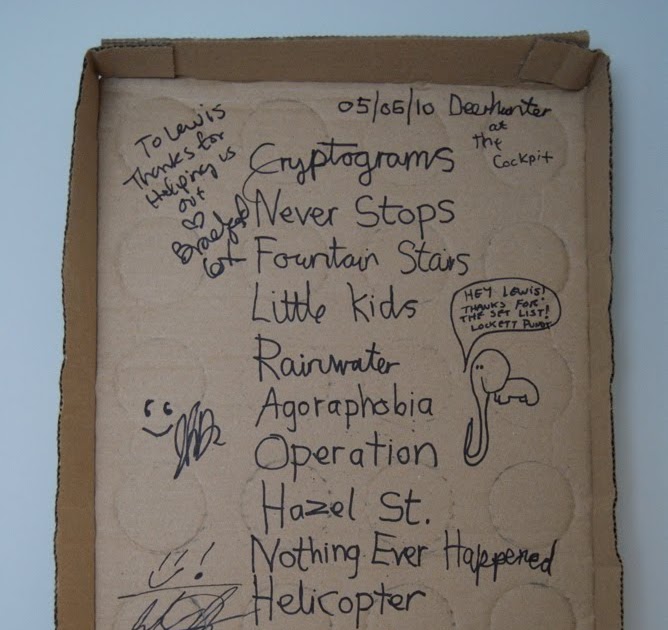 05/05/10 Deerhunter
at
The
Cockpit
To Lewis
Thanks for
Helping us
out
♡
Bradford
Cox
Cryptograms
Never Stops
Fountain Stairs
Little Kids
HEY LEWIS!
THANKS FOR
THE SET LIST!
LOCKETT PUNDT
Rainwater
Agoraphobia
Operation
Hazel St.
Nothing Ever Happened
Helicopter